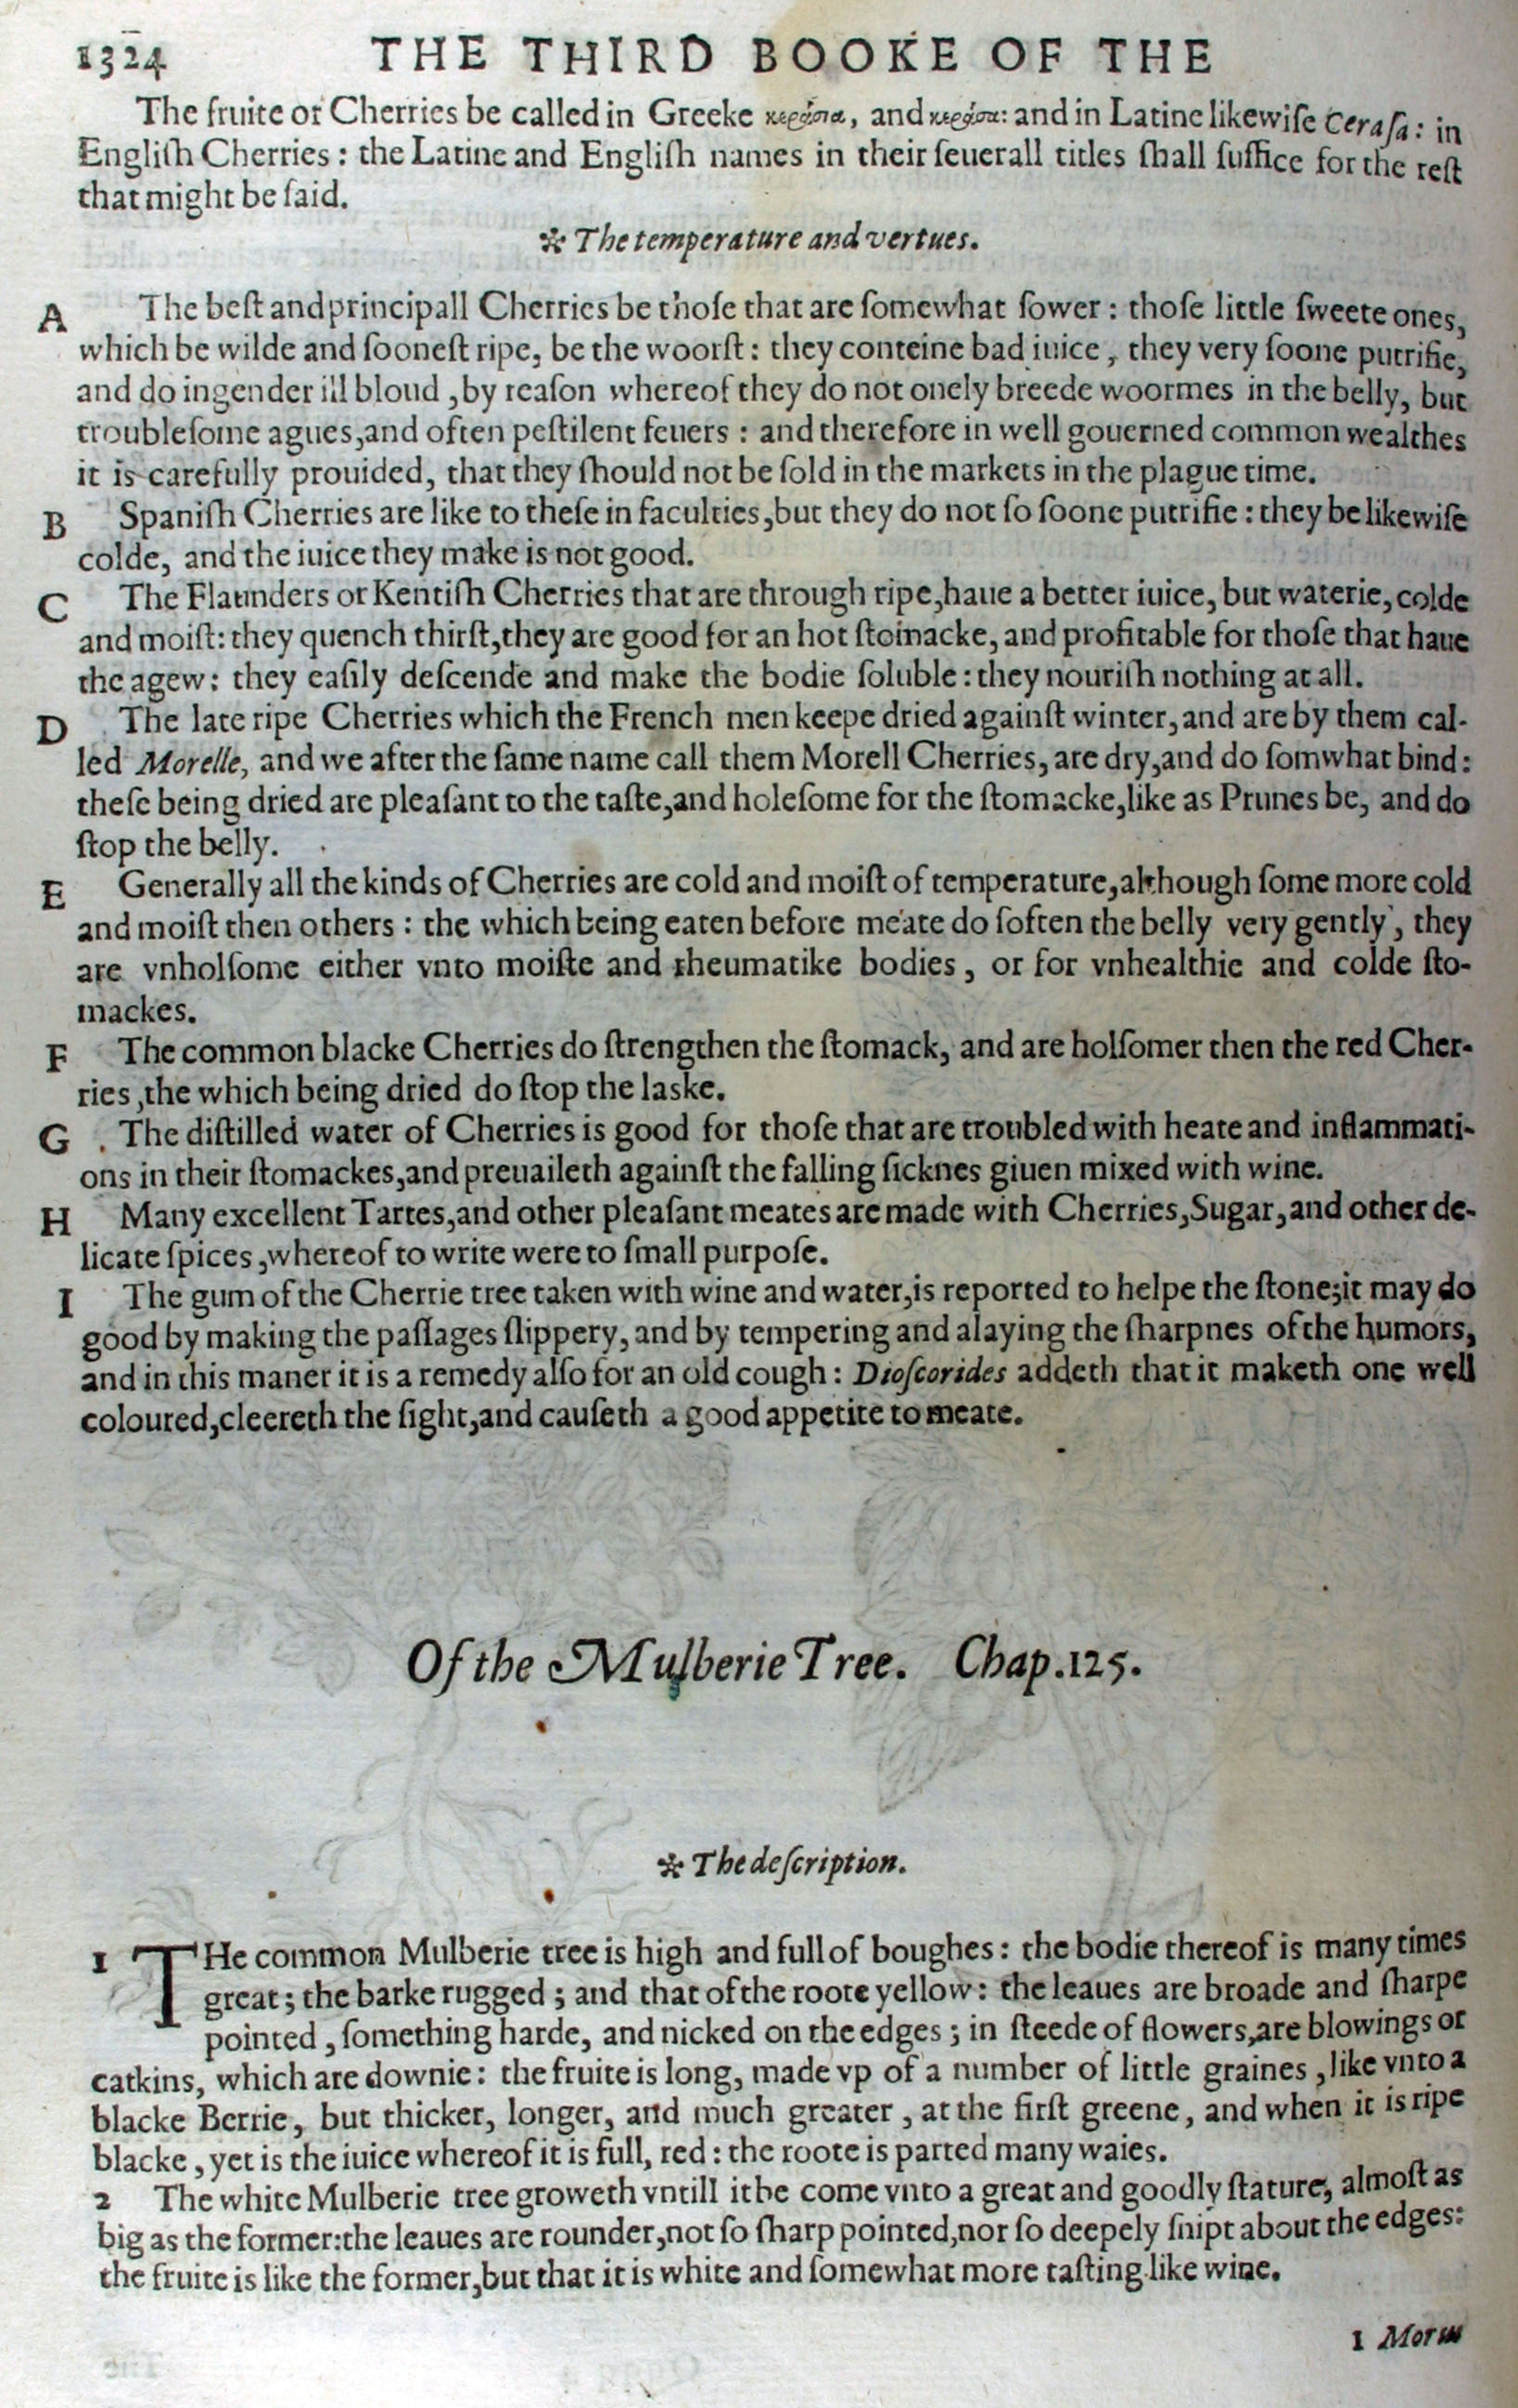 1324 THE THIRD BOOKE OF THE
The fruite of Cherries be called in Greeke κεράσια, and κεράσια: and in Latine likewiſe Ceraſa: in
Engliſh Cherries: the Latine and Engliſh names in their ſeuerall titles ſhall ſuffice for the reſt
that might be ſaid.
✲ The temperature and vertues.
A The beſt and principall Cherries be thoſe that are ſomewhat ſower: thoſe little ſweete ones,
which be wilde and ſooneſt ripe, be the woorſt: they conteine bad iuice, they very ſoone putrifie,
and do ingender ill bloud, by reaſon whereof they do not onely breede woormes in the belly, but
troubleſome agues, and often peſtilent feuers: and therefore in well gouerned common wealthes
it is carefully prouided, that they ſhould not be ſold in the markets in the plague time.
B Spaniſh Cherries are like to theſe in faculties, but they do not ſo ſoone putrifie: they be likewiſe
colde, and the iuice they make is not good.
C The Flaunders or Kentiſh Cherries that are through ripe, haue a better iuice, but waterie, colde
and moiſt: they quench thirſt, they are good for an hot ſtomacke, and profitable for thoſe that haue
the agew: they eaſily deſcende and make the bodie ſoluble: they nouriſh nothing at all.
D The late ripe Cherries which the French men keepe dried againſt winter, and are by them cal-
led Morelle, and we after the ſame name call them Morell Cherries, are dry, and do ſomwhat bind:
theſe being dried are pleaſant to the taſte, and holeſome for the ſtomacke, like as Prunes be, and do
ſtop the belly.
E Generally all the kinds of Cherries are cold and moiſt of temperature, although ſome more cold
and moiſt then others: the which being eaten before meate do ſoften the belly very gently, they
are vnholſome either vnto moiſte and rheumatike bodies, or for vnhealthie and colde ſto-
mackes.
F The common blacke Cherries do ſtrengthen the ſtomack, and are holſomer then the red Cher-
ries, the which being dried do ſtop the laske.
G The diſtilled water of Cherries is good for thoſe that are troubled with heate and inflammati-
ons in their ſtomackes, and preuaileth againſt the falling ſicknes giuen mixed with wine.
H Many excellent Tartes, and other pleaſant meates are made with Cherries, Sugar, and other de-
licate ſpices, whereof to write were to ſmall purpoſe.
I The gum of the Cherrie tree taken with wine and water, is reported to helpe the ſtone; it may do
good by making the paſſages ſlippery, and by tempering and alaying the ſharpnes of the humors,
and in this maner it is a remedy alſo for an old cough: Dioſcorides addeth that it maketh one well
coloured, cleereth the ſight, and cauſeth a good appetite to meate.
Of the Mulberie Tree. Chap. 125.
✲ The deſcription.
1 THe common Mulberie tree is high and full of boughes: the bodie thereof is many times
great; the barke rugged; and that of the roote yellow: the leaues are broade and ſharpe
pointed, ſomething harde, and nicked on the edges; in ſteede of flowers, are blowings or
catkins, which are downie: the fruite is long, made vp of a number of little graines, like vnto a
blacke Berrie, but thicker, longer, and much greater, at the firſt greene, and when it is ripe
blacke, yet is the iuice whereof it is full, red: the roote is parted many waies.
2 The white Mulberie tree groweth vntill it be come vnto a great and goodly ſtature, almoſt as
big as the former: the leaues are rounder, not ſo ſharp pointed, nor ſo deepely ſnipt about the edges:
the fruite is like the former, but that it is white and ſomewhat more taſting like wine.
1 Morus